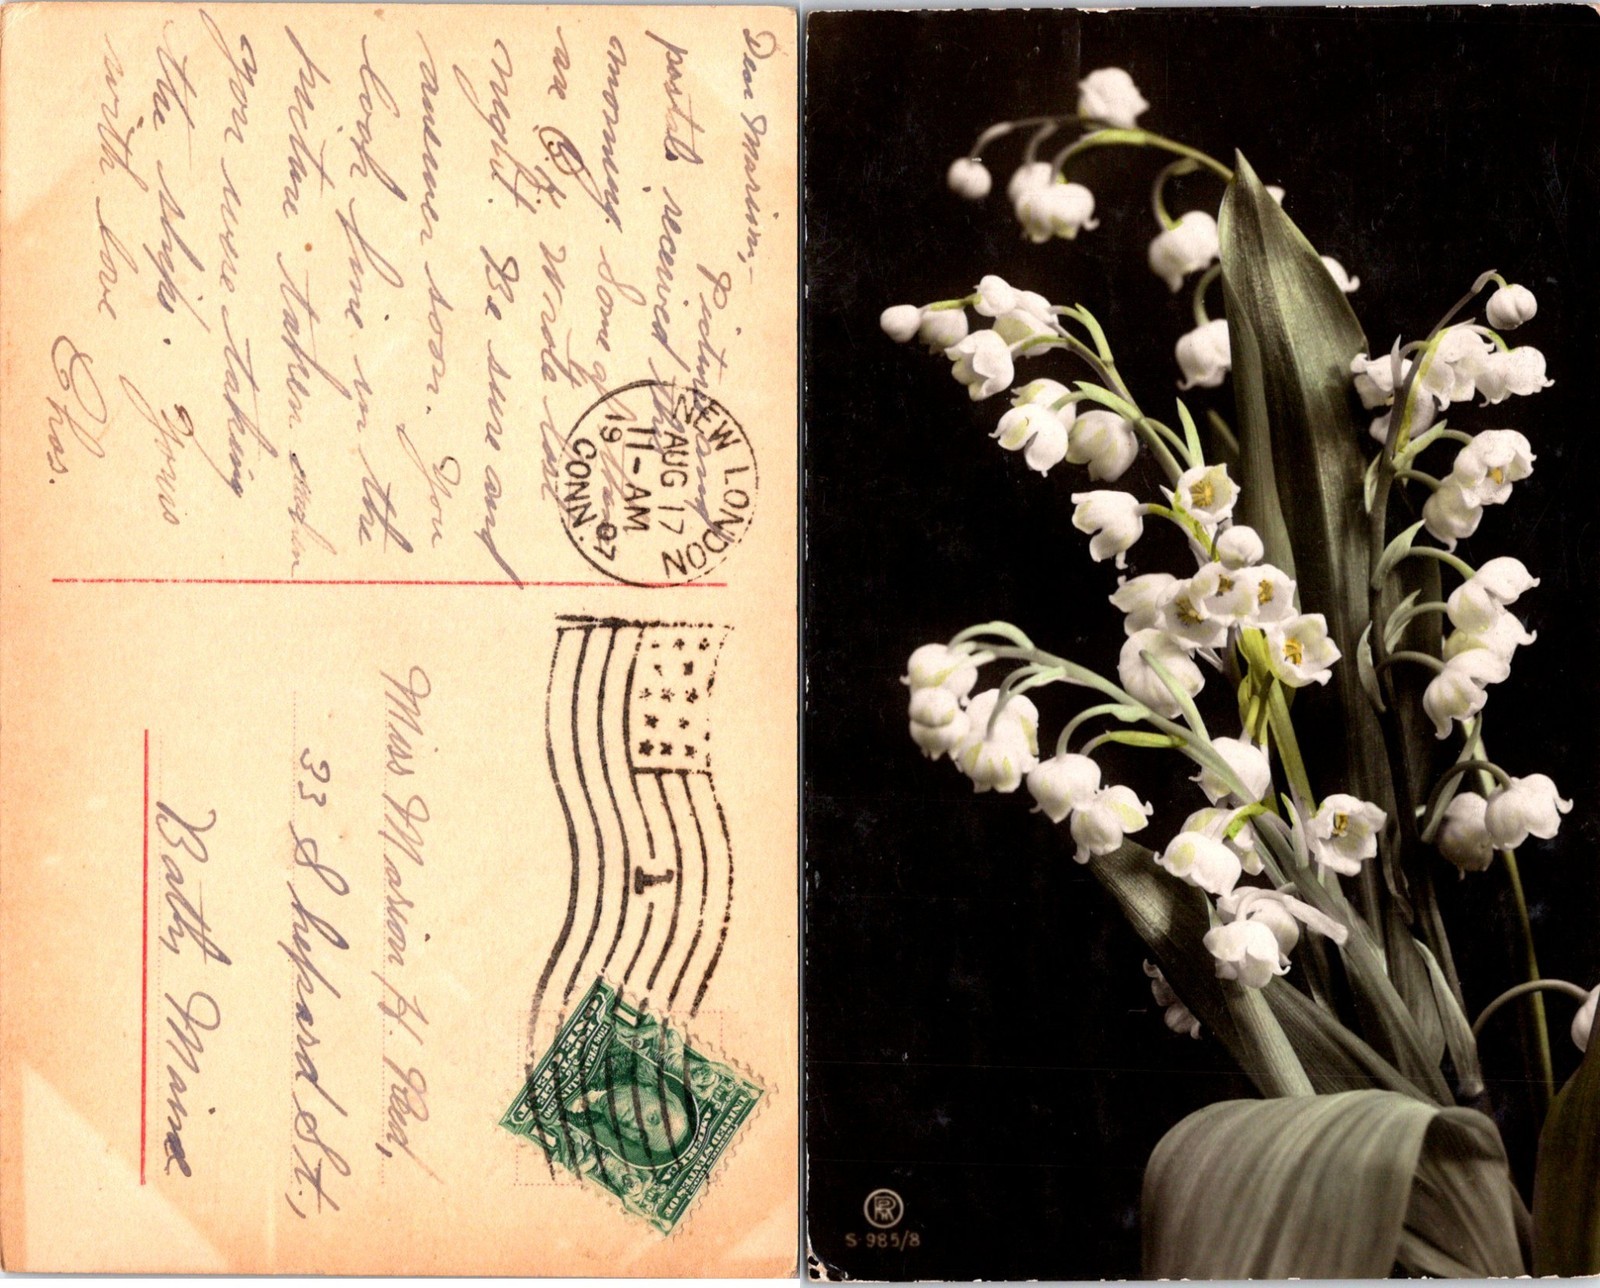 Dear Marion,—
Picture and
postals received this
morning. Some of them
are
Wrote last
night. Be sure and
answer soon. You
look fine in the
picture taken when
you were taking
the ships. Yours
with love
Chas.
NEW LONDON
AUG 17
11-AM
1907
CONN.
1
Miss Marion H. Reed,
33 Sheppard St.,
Bath, Maine
S 985/8